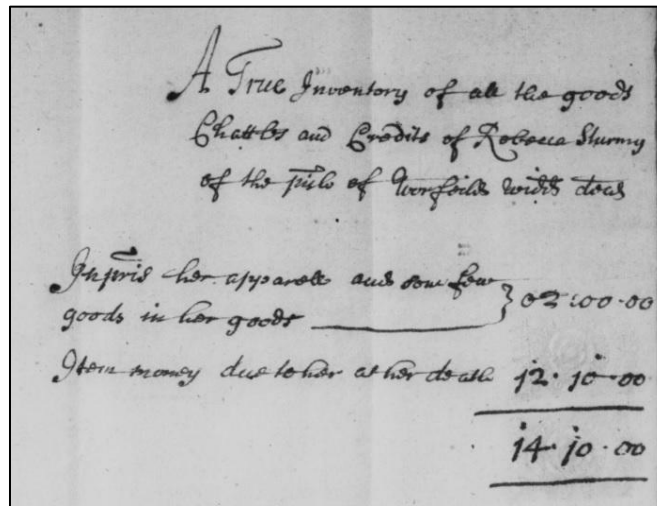 A True Inventory of all the goods
Chattles and Credits of Rebecca Sturmy
of the pish of Worfeild widd decd
Inpris her apparell and som few
goods in her goods } 02:00·00
Item money due to her at her death 12·10·00
14·10·00